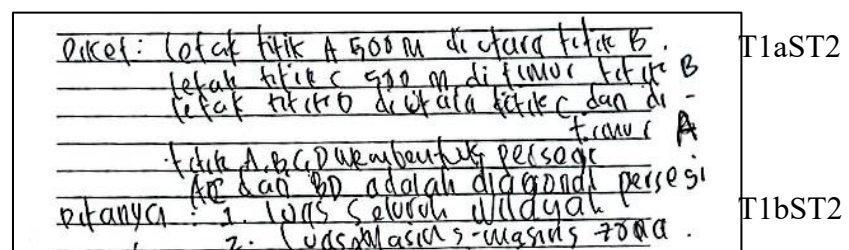 Diket: letak titik A 500 m di utara titik B.
letak titik C 500 m di timur titik B
letak titik D di utara titik C dan di -
timur A
titik A, B, C, D membentuk persegi
AC dan BD adalah diagonal persegi
Ditanya : 1. luas seluruh wilayah
2. luas masing-masing zona.
T1aST2
T1bST2